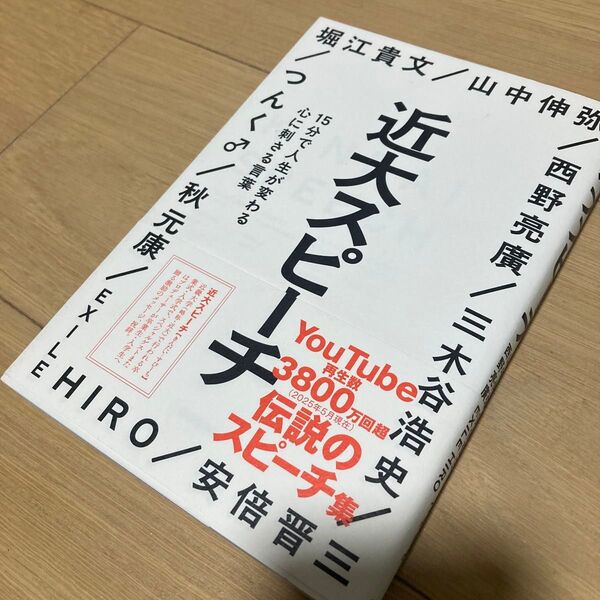 堀江貴文/山中伸弥
/西野亮廣/三木谷浩史/
安倍晋三
/つんく♂/秋元康/EXILE HIRO/
近大スピーチ
15分で人生が変わる
心に刺さる言葉
YouTube
再生数
3800万回超
(2025年5月現在)
伝説の
スピーチ集
EXILE HIRO